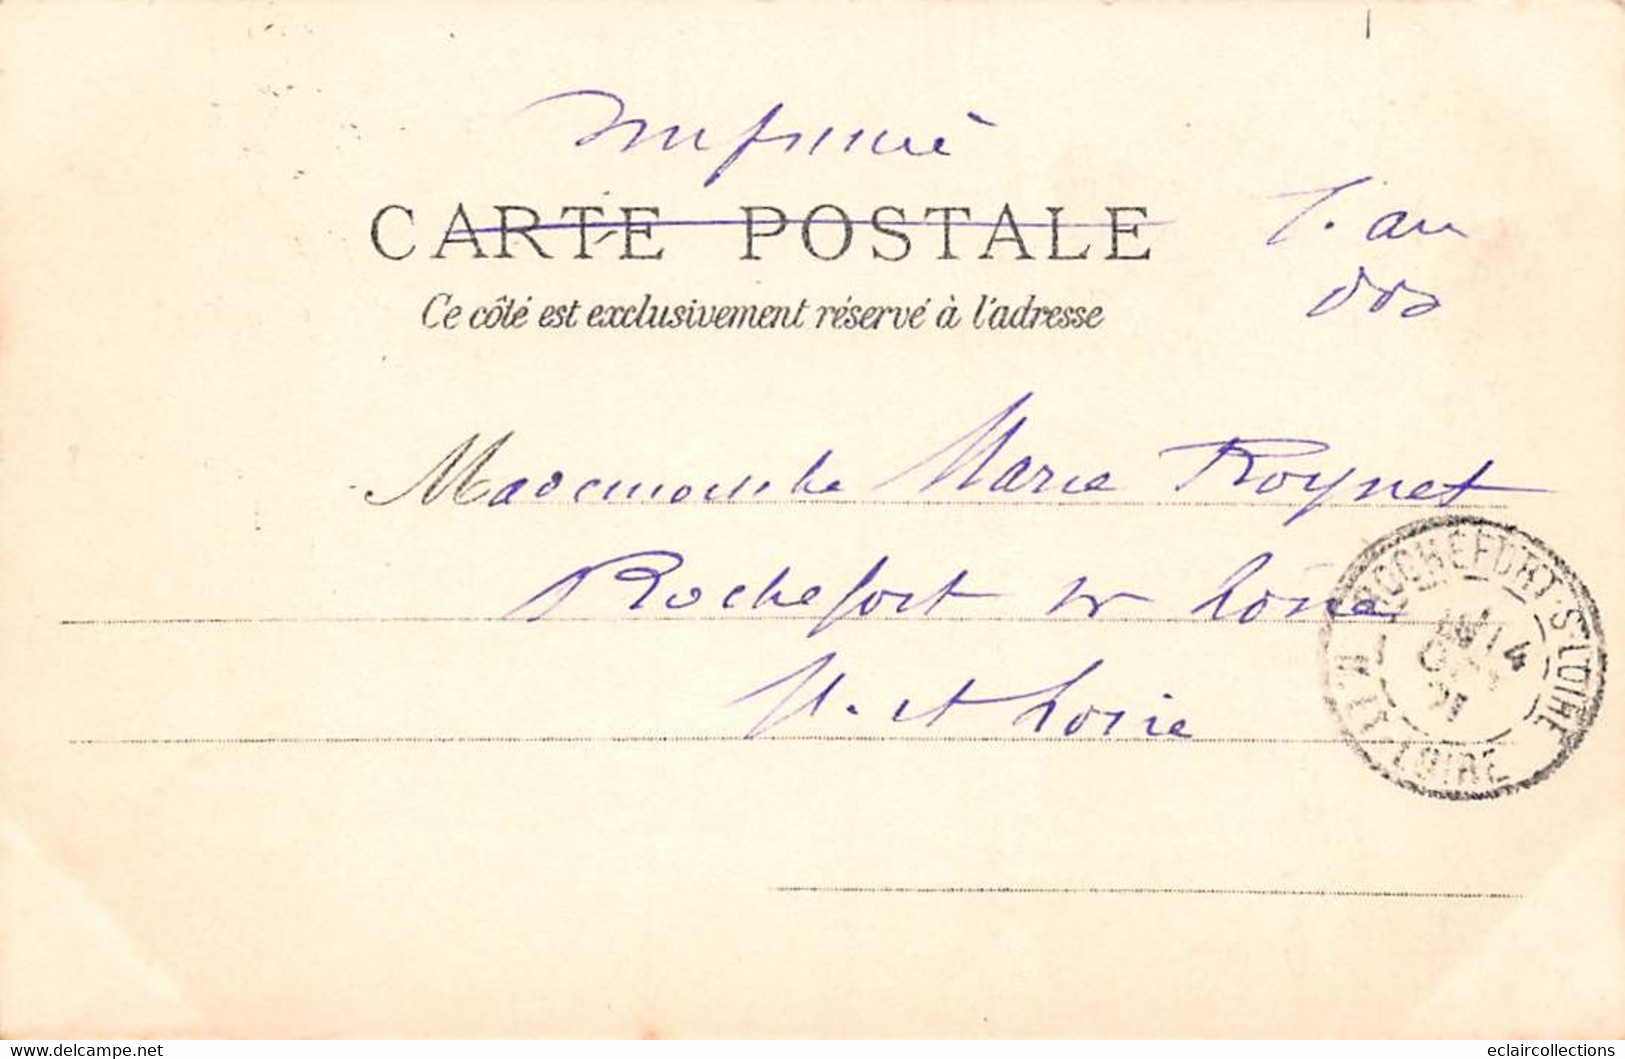 Imprimé
CARTE POSTALE
T. au
dos
Ce côté est exclusivement réservé à l'adresse
Mademoiselle Marie Roynet
Rochefort sr Loire
M. et Loire
ROCHEFORT-S-LOIRE
LOIRE
www.delcampe.net
eclaircollections